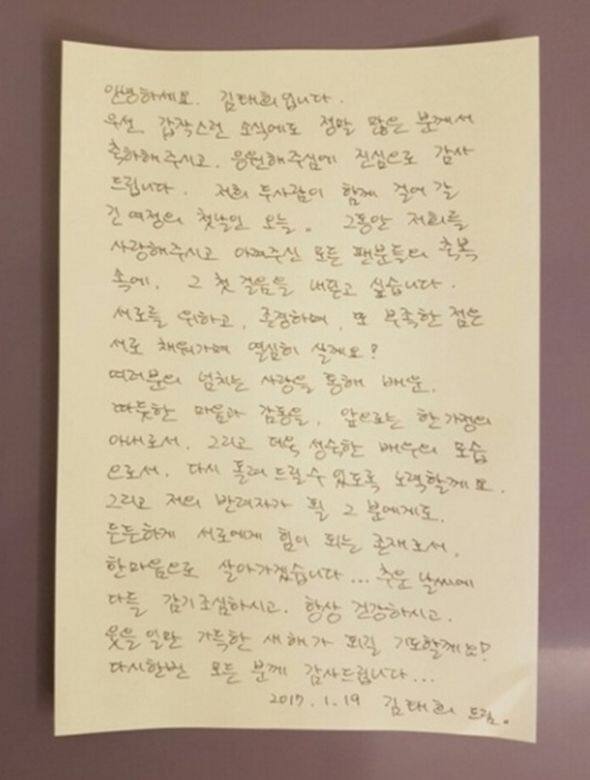 안녕하세요. 김태희입니다.
우선, 갑작스런 소식에도 정말 많은 분께서
축하해주시고, 응원해주심에 진심으로 감사
드립니다. 저희 두사람이 함께 걸어 갈
긴 여정의 첫날인 오늘. 그동안 저희를
사랑해주시고 아껴주신 모든 팬분들의 축복
속에, 그 첫 걸음을 내딛고 싶습니다.
서로를 위하고, 존경하며, 또 부족한 점은
서로 채워가며 열심히 살게요?
여러분의 넘치는 사랑을 통해 배운,
따뜻한 마음과 감동을, 앞으로는 한 가정의
아내로서, 그리고 더욱 성숙한 배우의 모습
으로서, 다시 돌려 드릴 수 있도록 노력할게요.
그리고 저의 반려자가 될 그 분에게도,
든든하게 서로에게 힘이 되는 존재로서,
한마음으로 살아가겠습니다... 추운 날씨에
다들 감기조심하시고, 항상 건강하시고,
웃을 일만 가득한 새해가 되길 기도할게요?
다시한번 모든 분께 감사드립니다...
2017. 1. 19 김태희 드림.